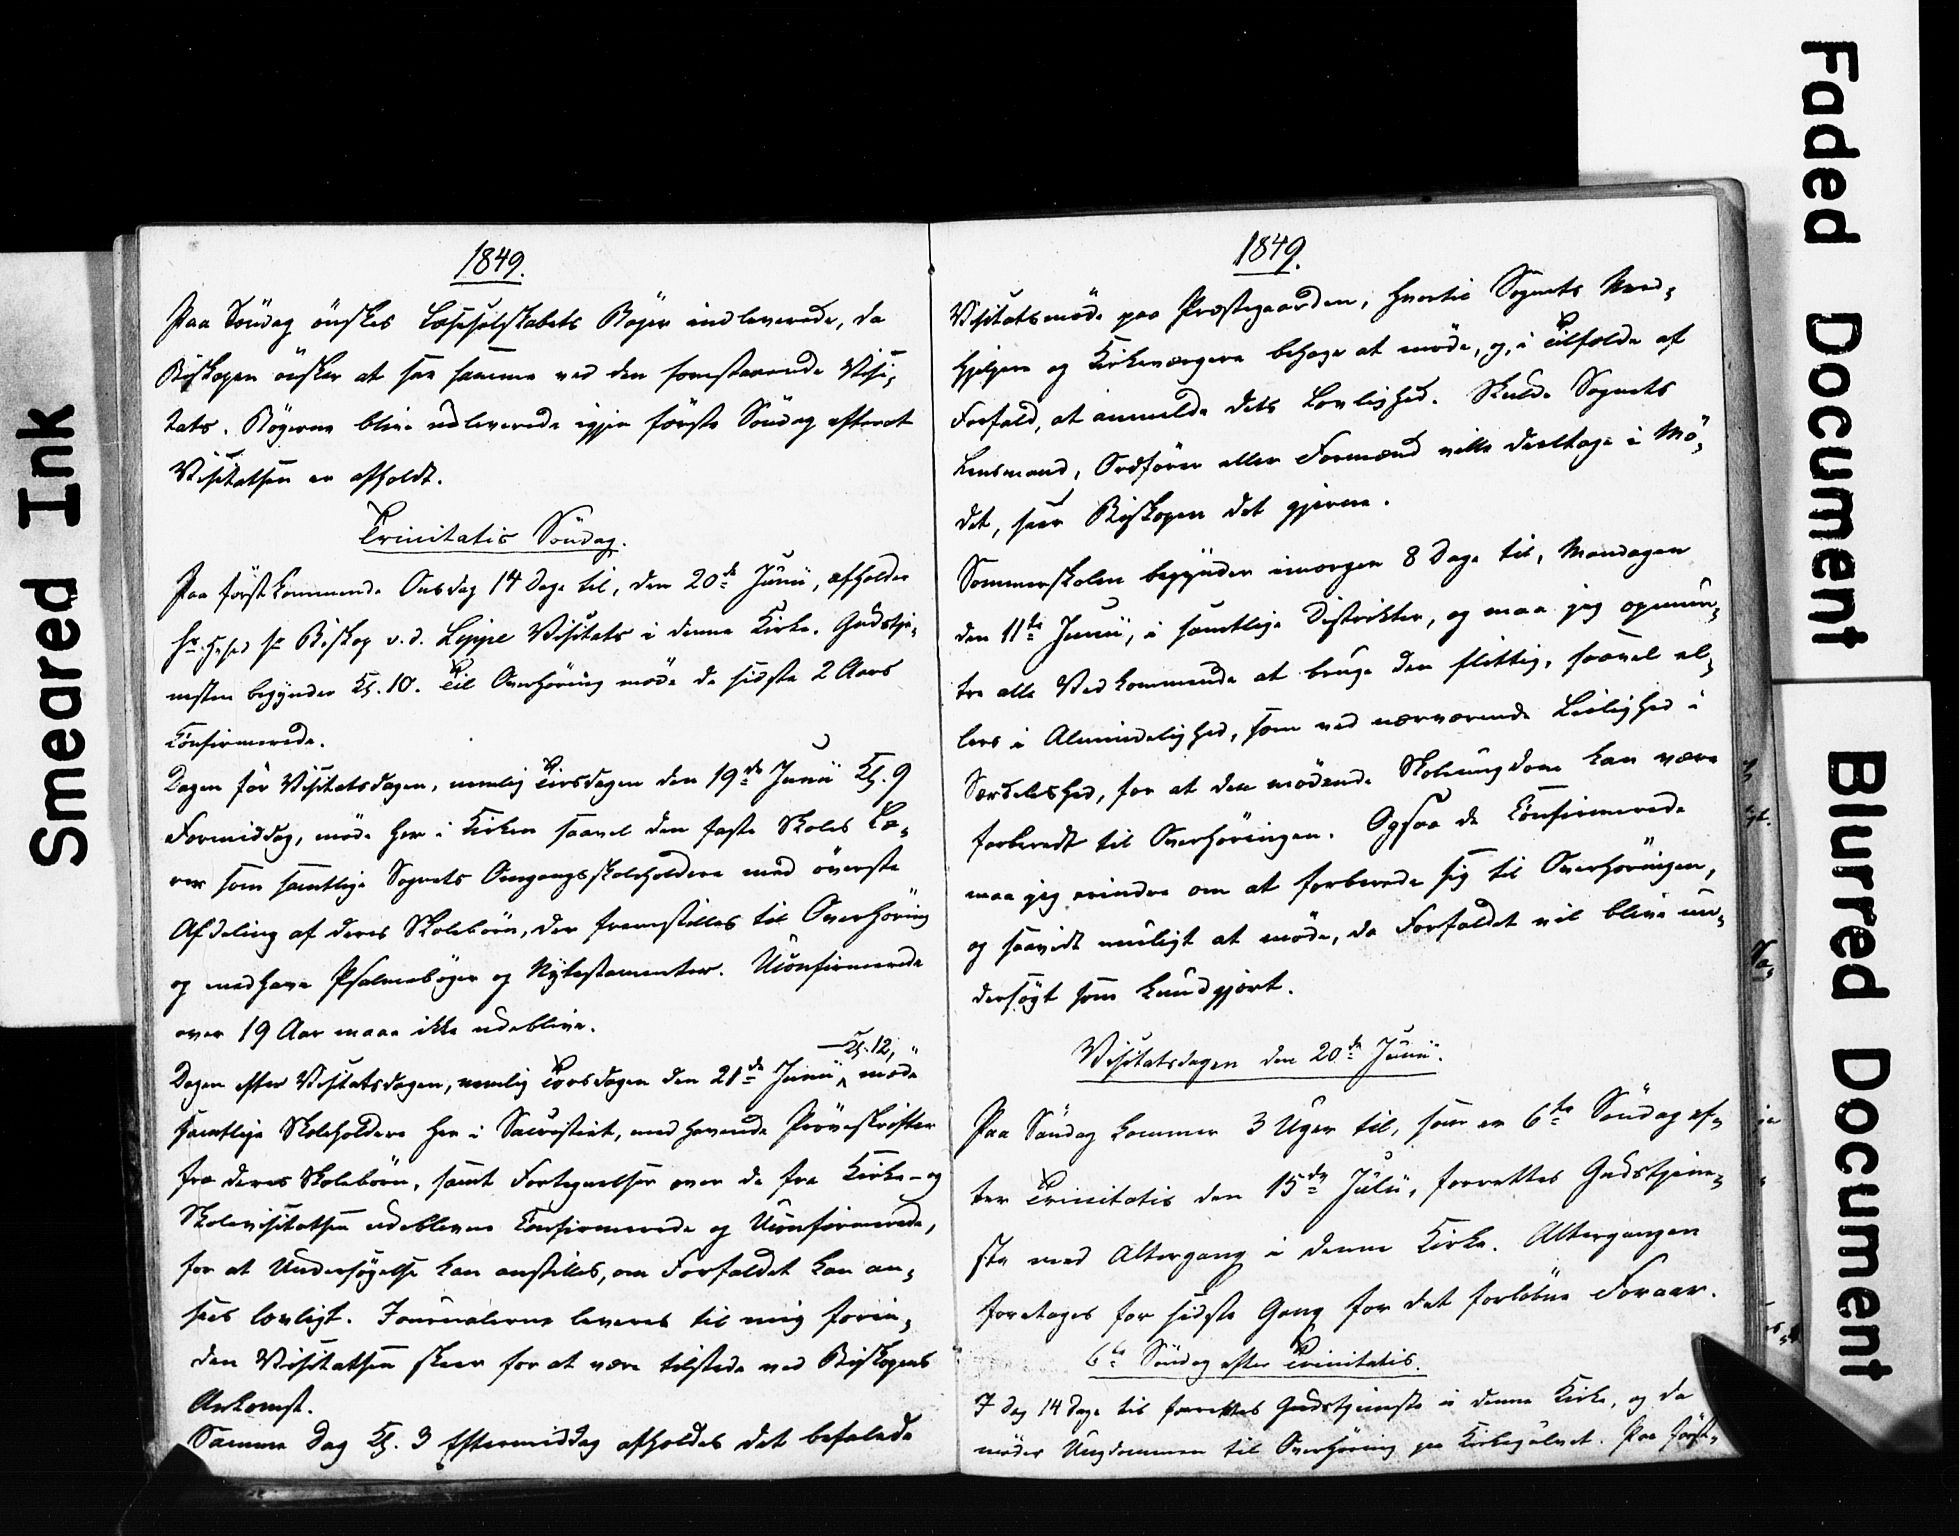 1849.
Paa Söndag önskes Læseselskabets Böger indleverede, da
Biskopen önsker at see samme ved den forestaaende Visi-
tats. Bögerne blive udleverede igjen förste Söndag efterat
Visitatsen er afholdt.
Trinitatis Söndag.
Paa förstkommende Onsdag 14 Dage til, den 20de Junii, afholder
Hr. Biskop v. d. Lippe Visitats i denne Kirke. Gudstje-
nesten begynder Kl. 10. Til Overhöring möde de sidste 2 Aars
Confirmerede.
Dagen för Visitatsdagen, nemlig Tirsdagen den 19de Junii Kl. 9
Formiddag, möde her i Kirken saavel den faste Skoles Læ-
rer som samtlige Sognets Omgangsskoleholdere med överste
Afdeling af deres Skolebörn, der fremstilles til Overhöring
og medhave Psalmebøger og Nytestamenter. Uconfirmerede
over 19 Aar maae ikke udeblive.
Dagen efter Visitatsdagen, nemlig Torsdagen den 21de Junii Kl. 12, möde
samtlige Skoleholdere her i Sacristiet, medhavende Pröveskrifter
fra deres Skolebörn, samt Fortegnelser over de fra Kirke- og
Skolevisitatsen udeblevne Confirmerede og Uconfirmerede,
for at Undersögelse kan anstilles, om Forfaldet kan an-
sees lovligt. Journalerne leveres til mig forin-
den Visitatsen skeer for at være tilstede ved Biskopens
Ankomst.
Samme Dag Kl. 3 Eftermiddag afholdes det befalede
1849.
Visitatsmöde paa Præstegaarden, hvortil Sognets Med-
hjelpere og Kirkeværgere behage at möde, og, i Tilfælde af
Forfald, at anmelde dets Lovlighed. Skulde Sognets
Lensmand, Ordförer eller Formænd ville deeltage i Mö-
det, seer Biskopen det gjerne.
Sommerskolen begynder imorgen 8 Dage til, Mandagen
den 11te Junii, i samtlige Distrikter, og maa jeg opmun-
tre alle Vedkommende at bruge den flittig, saavel el-
lers i Almindelighed, som ved nærværende Leilighed i
Særdeleshed, for at den mödende Skoleungdom kan være
forberedt til Overhöringen. Ogsaa de Confirmerede
maa jeg erindre om at forberede sig til Overhöringen,
og saavidt muligt at möde, da Forfaldet vil blive un-
dersögt som kundgjort.
Visitatsdagen den 20de Junii.
Paa Söndag kommer 3 Uger til, som er 6te Söndag ef-
ter Trinitatis den 15de Julii, forrettes Gudstjene-
ste med Altergang i denne Kirke. Altergangen
foretages for sidste Gang for det forløbne Foraar.
6te Söndag efter Trinitatis.
I Dag 14 Dage til forrettes Gudstjeneste i denne Kirke, og da
möder Ungdommen til Overhöring paa Kirkegulvet. Paa först-
Smeared Ink
Faded Document
Blurred Document